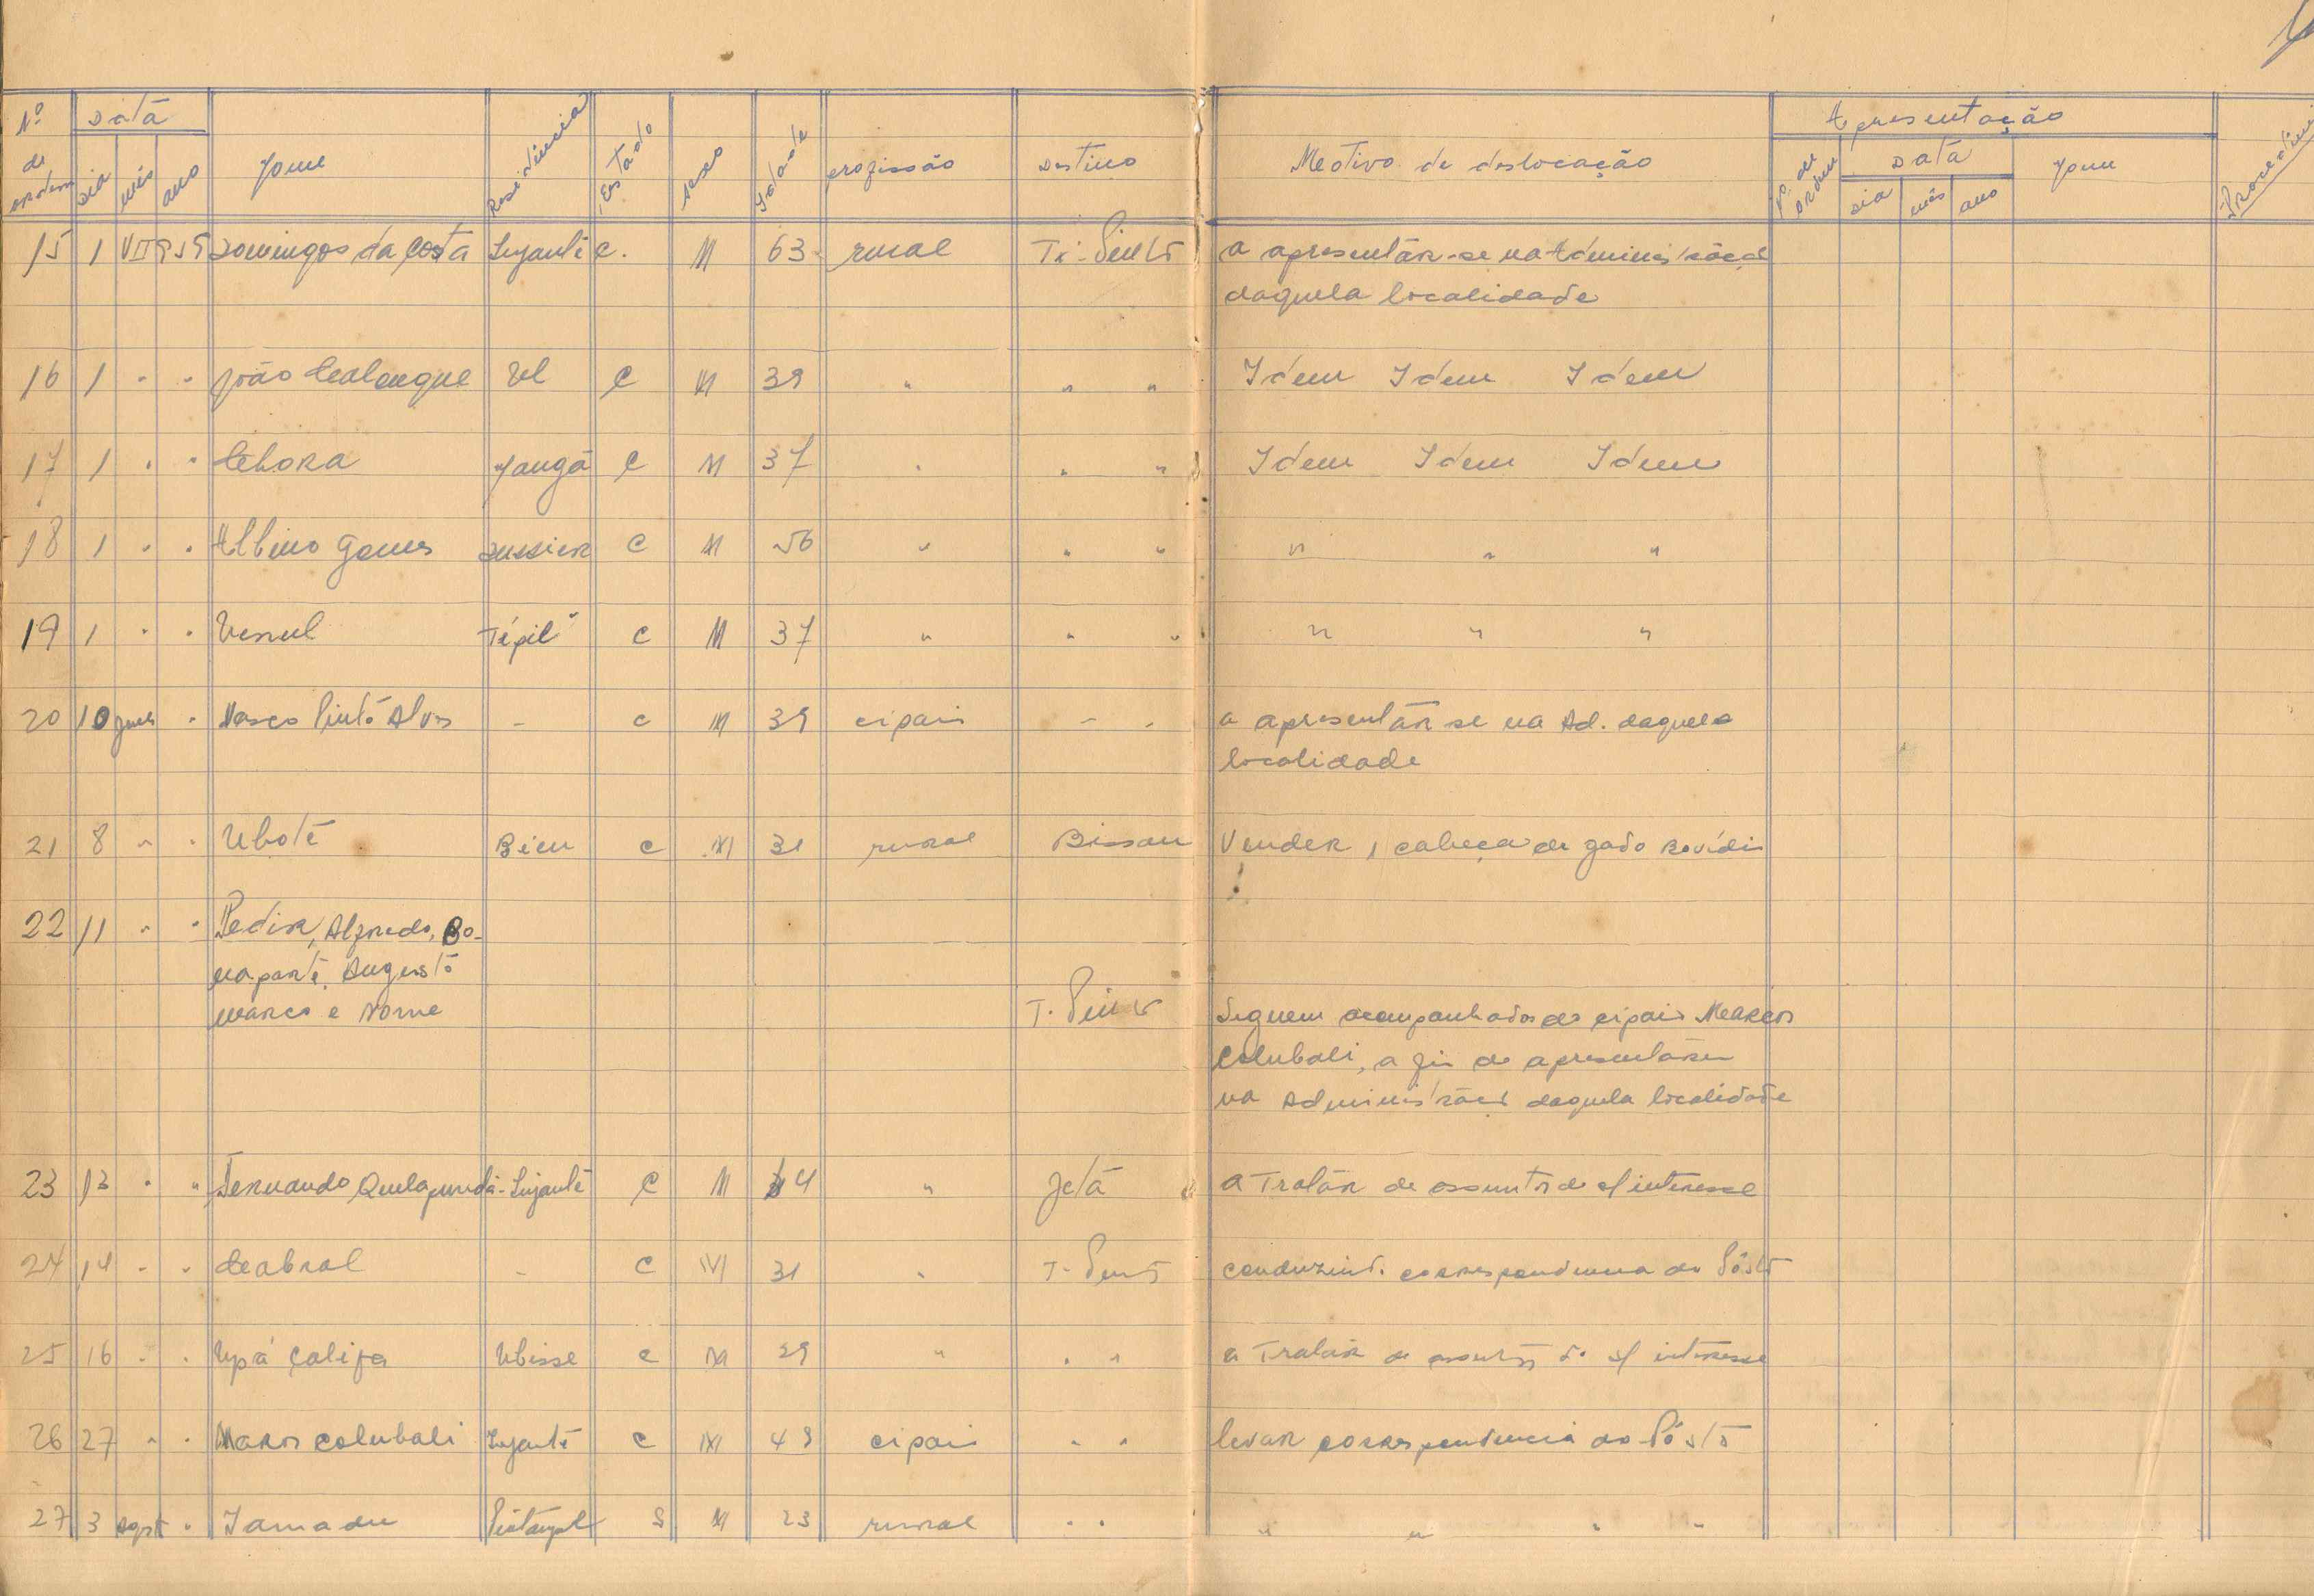 Nº de ordem Data Nome Residência Estado sexo Idade profissão Destino Motivo de deslocação Apresentação
dia mês ano Nº de ordem Data Nome
dia mês ano
15 1 VII 959 Domingos da Costa Lujante C. M 63 rural Ti-Pinto a apresentár-se na Administração
daquela localidade
16 1 " " João C M 39 " " " Idem Idem Idem
17 1 " " C M 37 " " " Idem Idem Idem
18 1 " " Albino Gomes C M 56 " " " " " "
19 1 " " Tépil C M 37 " " " " " "
20 10 " Vasco Pinto Alves - c M 39 cipais " " a apresentár se na Ad. daquela
localidade
21 8 " " Uboté Bieu c M 31 rural Bissau Vender 1 cabeça de gado
22 11 " " Pedir, Alfredo, Bo-
naparte, Augusto
marco e T. Pinto Seguem acompanhados do cipais Marcos
Colubali, a fim de apresentárem
na Administração daquela localidade
23 13 " " Fernando Lujanté C M " Jetá a Tratár de assuntos de s/ interesse
24 14 " " Cabral - C M 31 " T. Pinto conduzindo correspondencia do Pôsto
25 16 " " Upá Califa Ubisse c M 29 " " " a Tratár de assuntos de s/ interesse
26 27 " " Marcos Colubali Lujanté C M 49 cipais " " levar correspondencia do Pôsto
27 3 Agst " Iamadu S M 23 rural " " " " " "